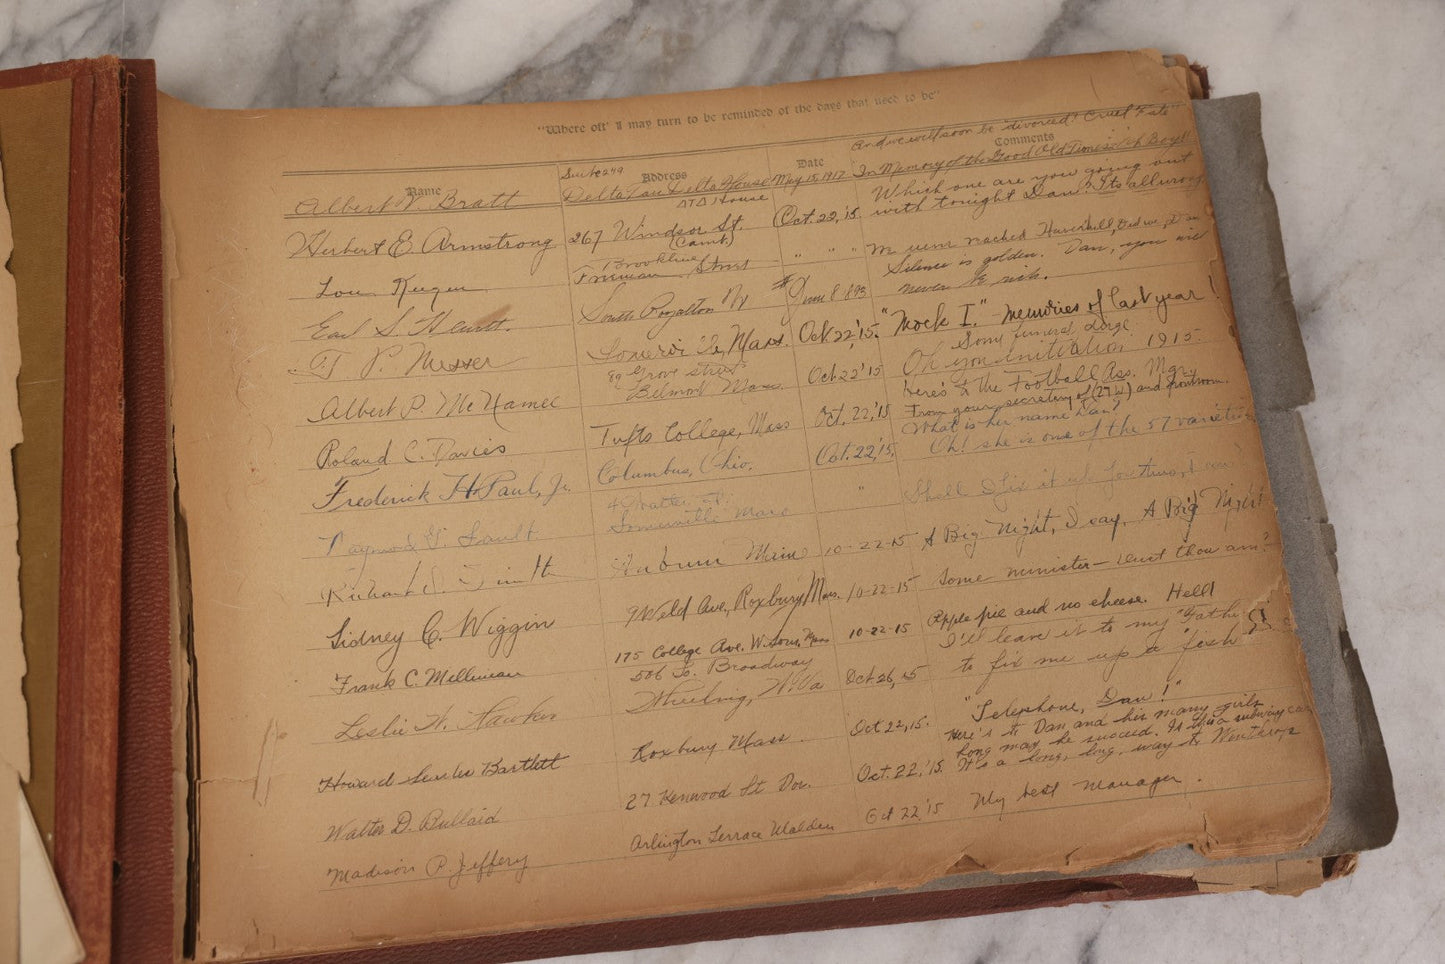 "Where oft' I may turn to be reminded of the days that used to be"
And we will soon be divorced! Cruel Fate"
Name Address Date Comments
Suite 249
Albert W. Bratt Delta Tau Delta House May 15, 1917 In Memory of the Good Old Times of Boys!!
ΔΤΔ House Which one are you going out
Herbert E. Armstrong 267 Windsor St. Oct. 22, '15 with tonight Dan? Its alluring
(Camb.)
Brookline
Lou Keegan Freeman Street " " " Haverhill,
Silence is golden. Dan, you will
Earl S. South Royalton June 8 1893 never be rich.
T. P. Messer Somerville, Mass. Oct 22, '15. "Mock I." - Memories of last year!
Some funeral dirge
Albert P. McNamee 89 Grove street Oct 22 '15 Oh you initiation 1915.
Belmont Mass.
Here's to the Football Ass. Mgr
Roland C. Davies Tufts College, Mass Oct. 22, '15 From your secretary of (27 W) and frontroom.
What is her name Dan?
Frederick H. Paul, Jr. Columbus, Ohio. Oct. 22, '15. Oh! she is one of the 57 varieties
Raymond 4 Walter St. " Shall I fix it up for
Somerville Mass
Richard Smith Auburn Maine 10-22-15 A Big Night, I say, A Big Night
Sidney C. Wiggin 9 Weld Ave, Roxbury, Mass. 10-22-15 Some minister - thou am?
Frank C. Millineau 175 College Ave. W. Som, Mass 10-22-15 Apple pie and no cheese. Hell
506 So. Broadway I'll leave it to my "Father"
Leslie W. Hawker Wheeling, W. Va Oct. 26, 15 to fix me up a "josh"
Howard Bartlett Roxbury Mass. Oct 22, 15. "Telephone, Dan!"
Here's to Dan and his many girls
Long may he succeed. Is it a subway car
Walter D. Bullard 27 Kenwood St Dor. Oct. 22, '15. It's a long, long, way to Winthrop
Madison P. Jeffery Arlington Terrace Malden Oct 22, '15 My best manager.